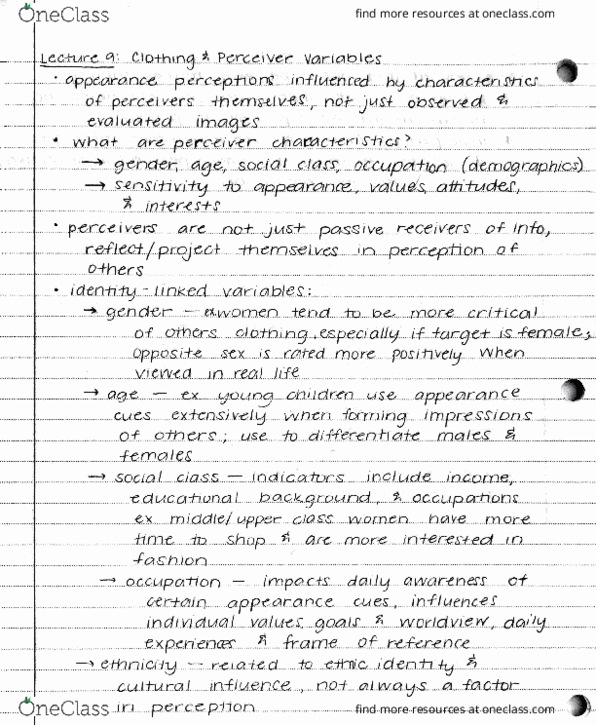 OneClass
find more resources at oneclass.com
Lecture 9: Clothing & Perceiver Variables
• appearance perceptions influenced by characteristics
of perceivers themselves, not just observed &
evaluated images
• what are perceiver characteristics?
→ gender, age, social class, occupation (demographics)
→ sensitivity to appearance, values, attitudes,
& interests
• perceivers are not just passive receivers of info,
reflect/project themselves in perception of
others
• identity-linked variables:
→ gender – women tend to be more critical
of others clothing, especially if target is female,
opposite sex is rated more positively when
viewed in real life
→ age – ex young children use appearance
cues extensively when forming impressions
of others; use to differentiate males &
females
→ social class – indicators include income,
educational background, & occupations
ex middle/upper class women have more
time to shop & are more interested in
fashion
→ occupation – impacts daily awareness of
certain appearance cues, influences
individual values, goals & worldview, daily
experiences & frame of reference
→ ethnicity – related to ethnic identity &
cultural influence, not always a factor
in perception
OneClass
find more resources at oneclass.com